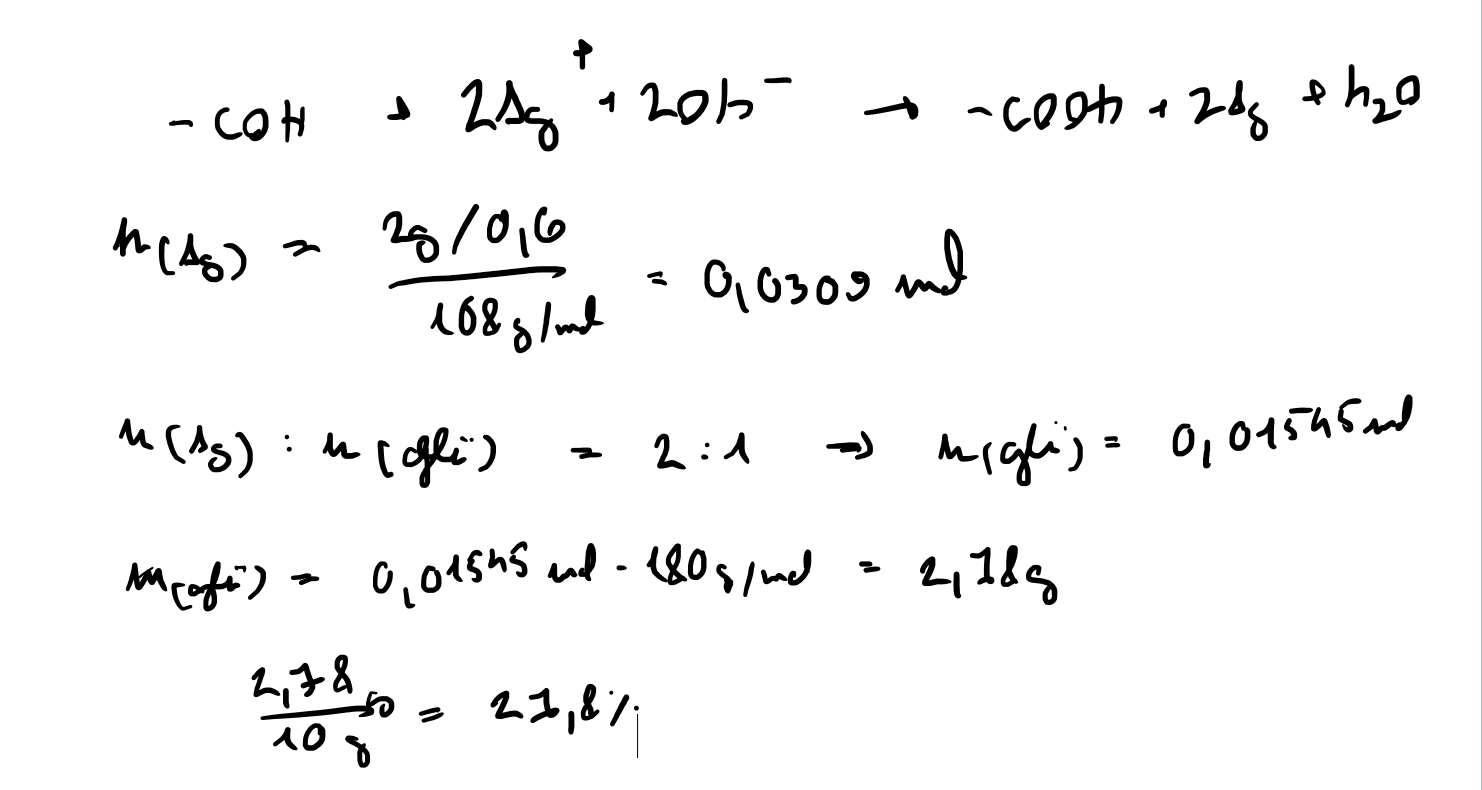 -COH + 2Ag⁺ + 2OH⁻ → -COOH + 2Ag + H₂O
n(Ag) = 2g/0,6 / 108g/mol = 0,0309 mol
n(Ag) : n(glü) = 2:1 → n(glü) = 0,01545 mol
m(glü) = 0,01545 mol · 180g/mol = 2,78g
2,78g / 10g = 27,8%